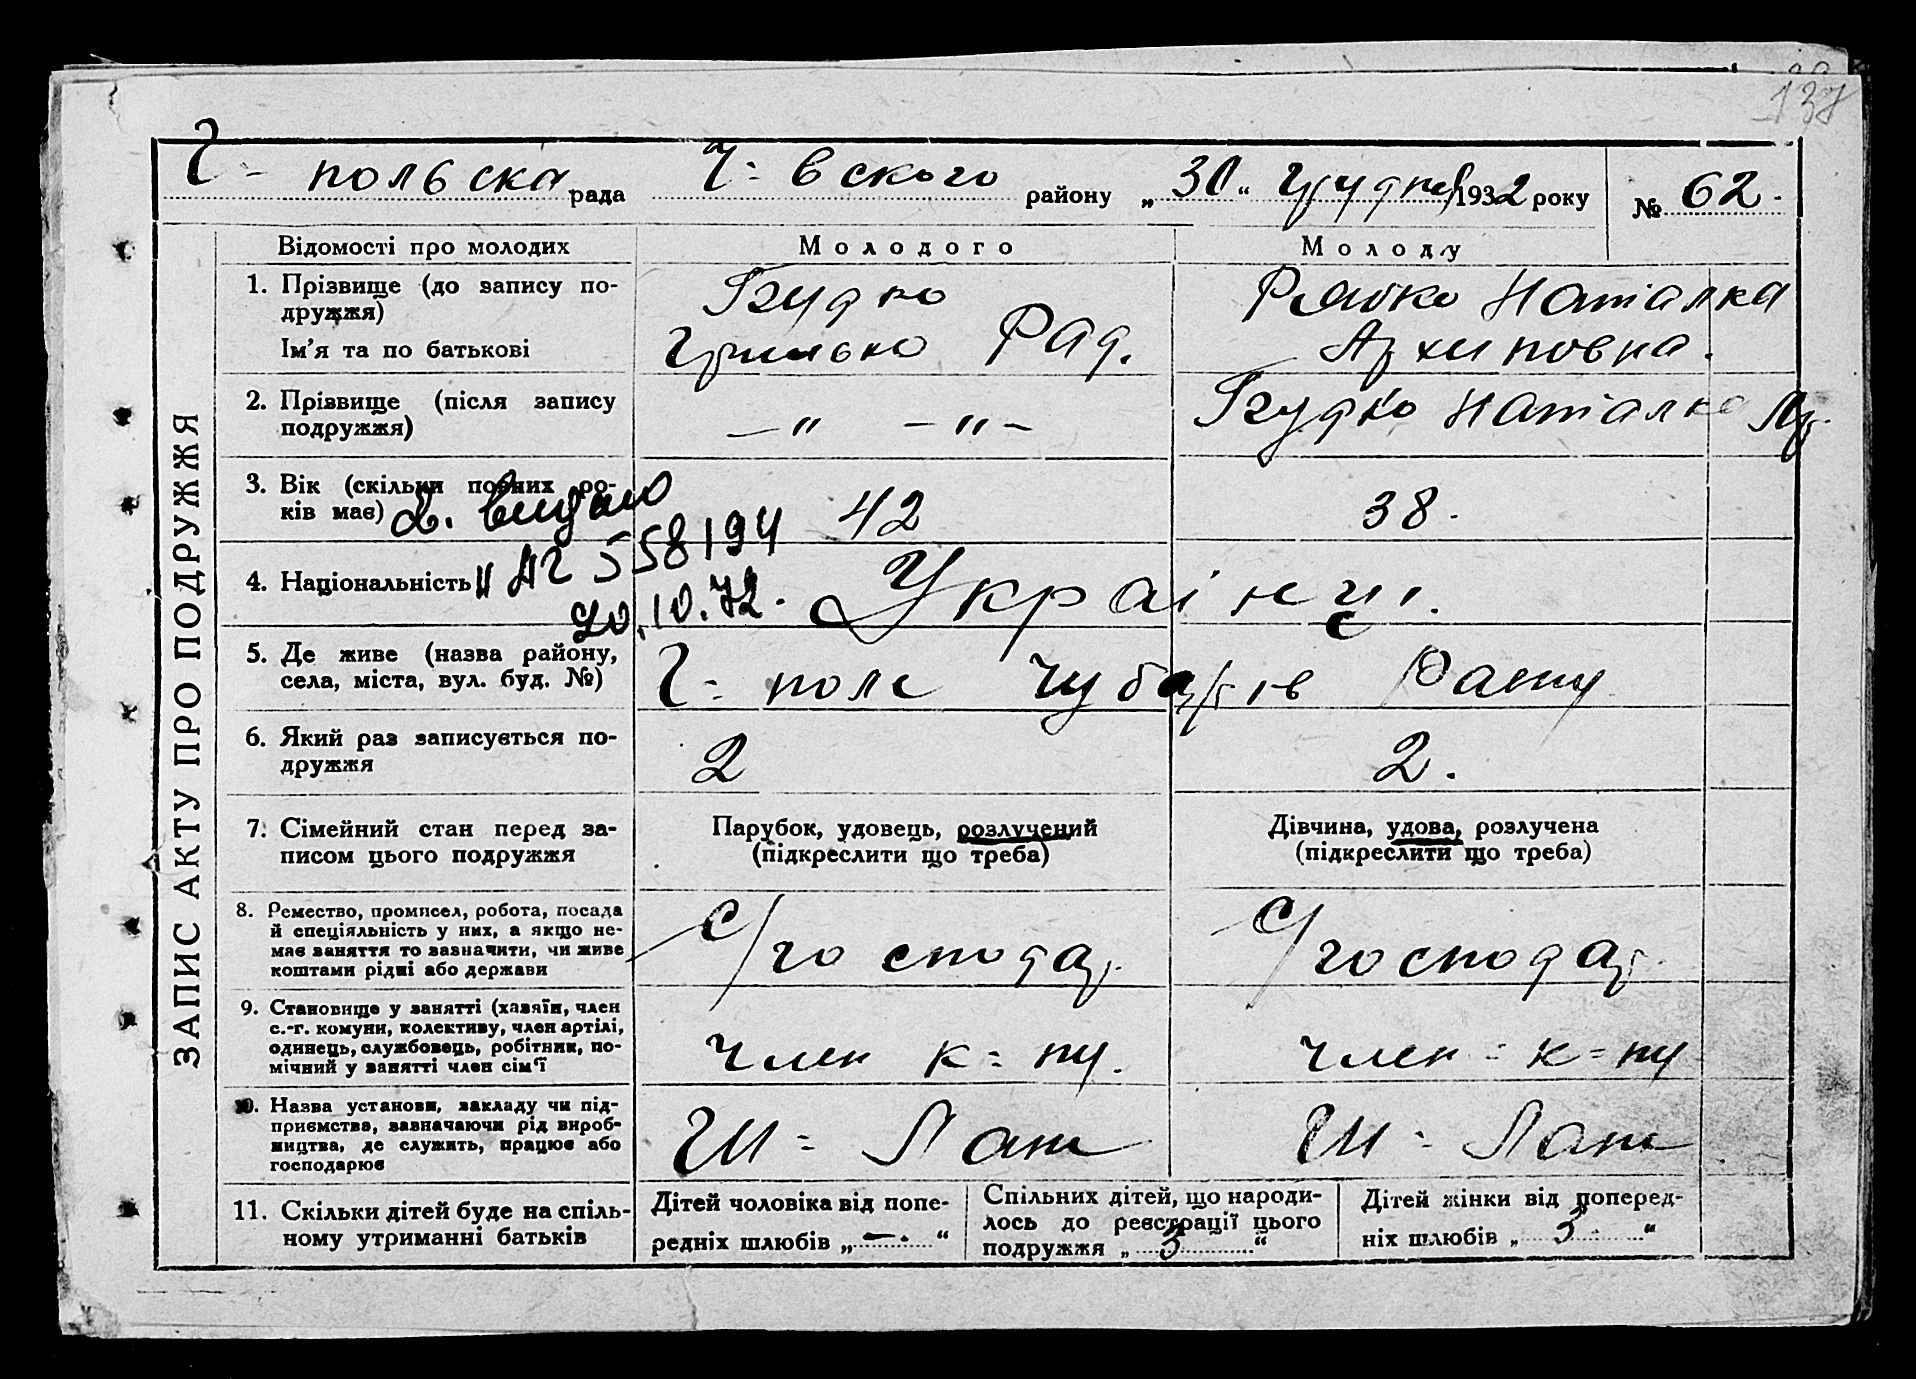 137
Г - польска рада Ч= вского району „30“ Грудня 1932 року № 62.
ЗАПИС АКТУ ПРО ПОДРУЖЖЯ
Відомості про молодих Молодого Молоду
1. Прізвище (до запису по-
дружжя)
Ім'я та по батькові
Гудко
Грицько Рад.
Рябко Наталка
Архиповна.
2. Прізвище (після запису
подружжя)
— " — " —
Гудко Наталка Ар.
3. Вік (скільки повних ро-
ків має)
42
38.
видано
558194
20.10.72.
4. Національність
Українці.
5. Де живе (назва району,
села, міста, вул. буд. №)
Г= поле Чубарів Району
6. Який раз записується по-
дружжя
2
2.
7. Сімейний стан перед за-
писом цього подружжя
Парубок, удовець, розлучений
(підкреслити що треба)
Дівчина, удова, розлучена
(підкреслити що треба)
8. Ремество, промисел, робота, посада
й спеціяльність у них, а якщо не-
має заняття то зазначити, чи живе
коштами рідні або держави
С/господар.
С/господар.
9. Становище у занятті (хазяїн, член
с.-г. комуни, колективу, член артілі,
одинець, службовець, робітник, по-
мічний у занятті член сім'ї
член к= пу.
член - к= пу
10. Назва установи, закладу чи під-
приємства, зазначаючи рід вироб-
ництва, де служить, працює або
господарює
11. Скільки дітей буде на спіль-
ному утриманні батьків
Дітей чоловіка від попе-
редніх шлюбів „ — . “
Спільних дітей, що народи-
лось до реєстрації цього
подружжя „ 3 “
Дітей жінки від поперед-
ніх шлюбів „ 3 “